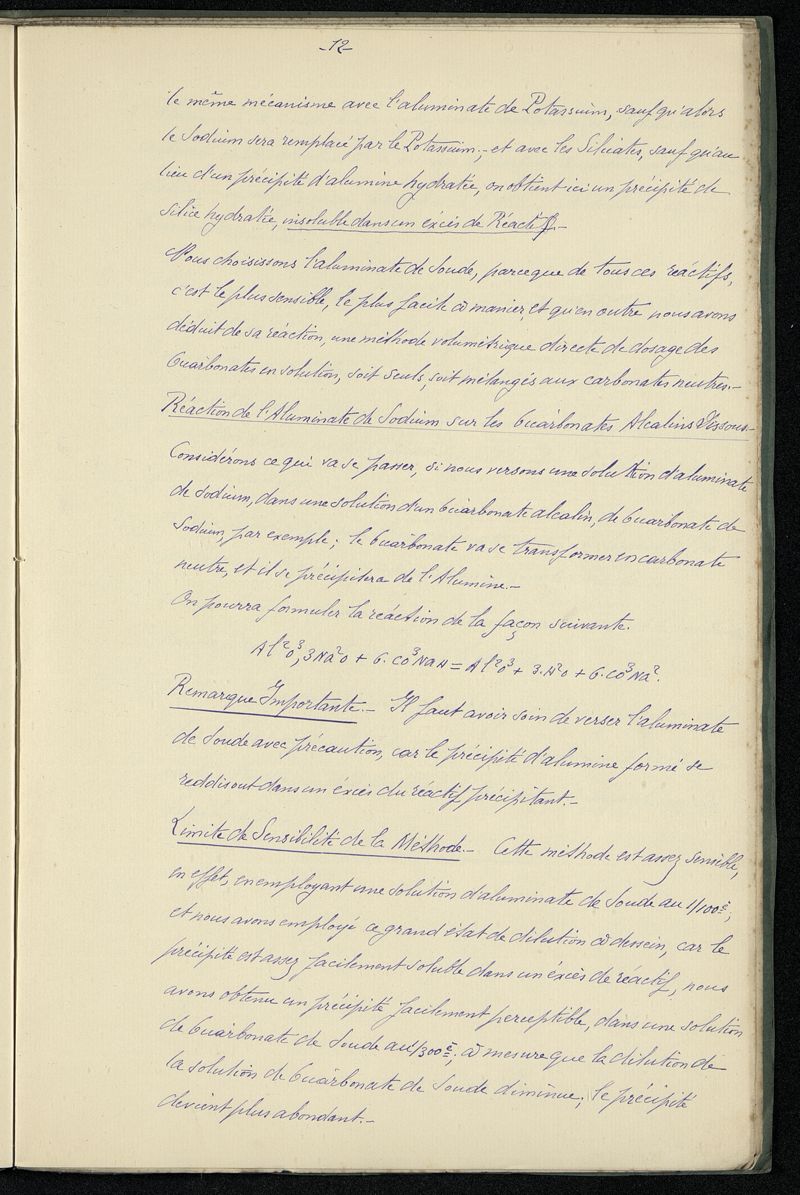 -12-
le même mécanisme avec l'aluminate de Potassium, sauf qu'alors
le Sodium sera remplacé par le Potassium; et avec les Silicates, sauf qu'au
lieu d'un précipité d'alumine hydratée, on obtient ici un précipité de
silice hydratée, insoluble dans un éxcès de Réactif.-
Nous choisissons l'aluminate de soude, parceque de tous ces réactifs,
c'est le plus sensible, le plus facile à manier, et qu'en outre nous avons
déduit de sa réaction, une méthode volumétrique directe de dosage des
bicarbonates en solution, soit seuls, soit mélangés aux carbonates neutres.-
Réaction de l'Aluminate de Sodium sur les bicarbonates Alcalins Dissous.-
Considérons ce qui va se passer, si nous versons une solution d'aluminate
de sodium, dans une solution d'un bicarbonate alcalin, de bicarbonate de
Sodium, par exemple; le bicarbonate va se transformer en carbonate
neutre, et il se précipitera de l'Alumine.-
On pourra formuler la réaction de la façon suivante.
Al²O³,3Na²O + 6.CO³NaH = Al²O³ + 3.H²O + 6.CO³Na².
Remarque Importante.- Il faut avoir soin de verser l'aluminate
de soude avec précaution, car le précipité d'alumine formé se
reddisout dans un éxcès du réactif précipitant.-
Limite de Sensibilité de la Méthode.- Cette méthode est assez sensible,
en effet, en employant une solution d'aluminate de soude au 1/100è;
et nous avons employé ce grand état de dilution à dessein, car le
précipité est assez facilement soluble dans un éxcès de réactif, nous
avons obtenu un précipité facilement perceptible, dans une solution
de bicarbonate de soude au 1/300è; à mesure que la dilution de
la solution de bicarbonate de soude diminue; le précipité
devient plus abondant.-